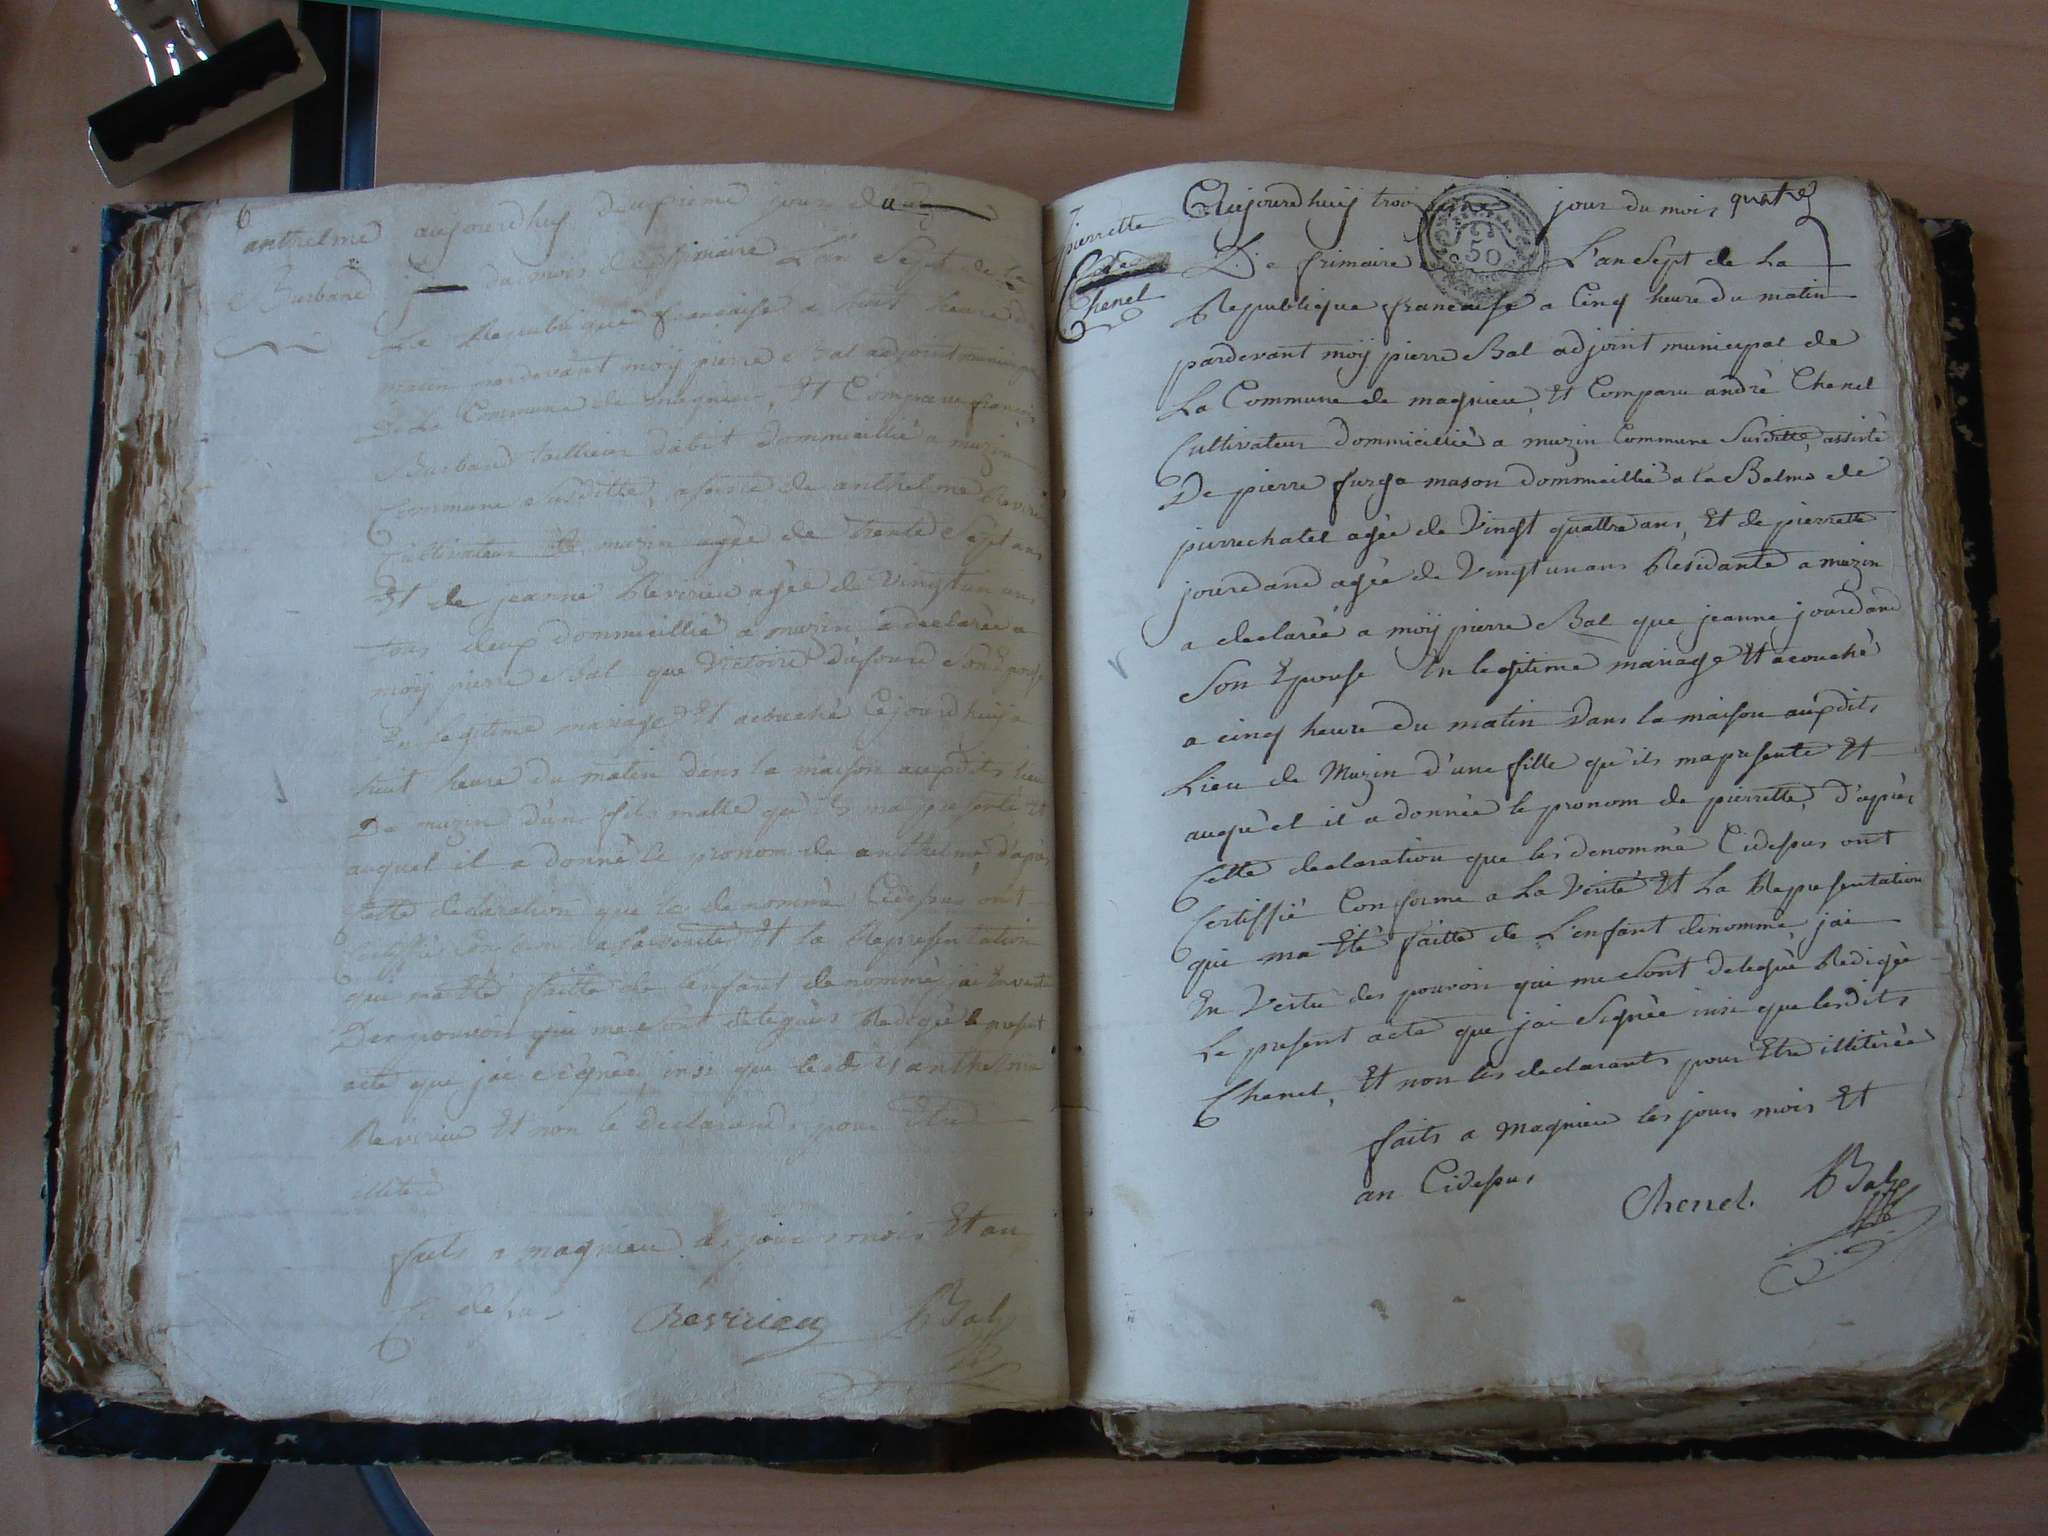 6
anthelme aujourdhuy deuxieme jour du
Burband du mois de frimaire L'an Sept de la
Republique francaise a huit heure du
matin pardevant moÿ pierre Bal adjoint municipal
De La Commune de magnieu, Et Comparu francois
Burband taillieur dabit dommicillié a muzin
Commune Susditte, assisté de anthelme Reverieu
Cultivateur de muzin agée de trente Sept ans
Et de jeanne Reverieu agée de vingt un ans
tous deux dommicillié a muzin a declarée a
moÿ pierre Bal que Victoire Son Epouse
En legitime mariage Et acouché Cejourdhuij a
huit heure du matin dans la maison aupdits lieu
De muzin d'un fils malle qu'il ma presenté Et
auquel il a donné le pronom de anthelme, d'après
Cette declaration que les denommé Cidessus ont
Certiffié Conforme a la verité Et la Representation
qui ma Eté faitte de l'enfant denommé, jai En vertu
Des pouvoir qui me sont delegués Redigée le present
acte que jai signée, insi que ledit anthelme
Reverieu Et non le declarands pour Etre
illiteré
faits a magnieu les jours mois Et an
Ci desus
Reverieu Bal
7
pierrette
Chenel
Aujourdhuij troisieme jour du mois quatre
De frimaire L'an Sept de La
50
Republique francaise a Cinq heure du matin
pardevant moÿ pierre Bal adjoint municipal de
La Commune de magnieu, Et Comparu andrè Chenel
Cultivateur dommicillié a muzin Commune Susditte, assisté
De pierre furga mason dommicillié a la Balme de
pierrechatel agée de Vingt quattre ans, Et de pierrette
jourdand agée de Vingt un ans Residante a muzin
a declarée a moÿ pierre Bal que jeanne jourdand
Son Epouse En legitime mariage Et acouché
a cinq heure du matin Dans la maison aupdits
Lieu de Muzin d'une fille qu'ils mapresente Et
auqu'el il a donnée le pronom de pierrette, d'après
Cette declaration que les denommé Cidessus ont
Certiffié Conforme a La Verité Et La Representation
qui ma Eté faitte de L'enfant denommé jai
En Vertu des pouvoir qui me Sont delegué Redigée
Le present acte que jai Signée insi que lesdits
Chenel, Et non les declarants pour Etre illiterée
faits a Magnieu les jours mois Et
an Cidessus
Chenel. Bal